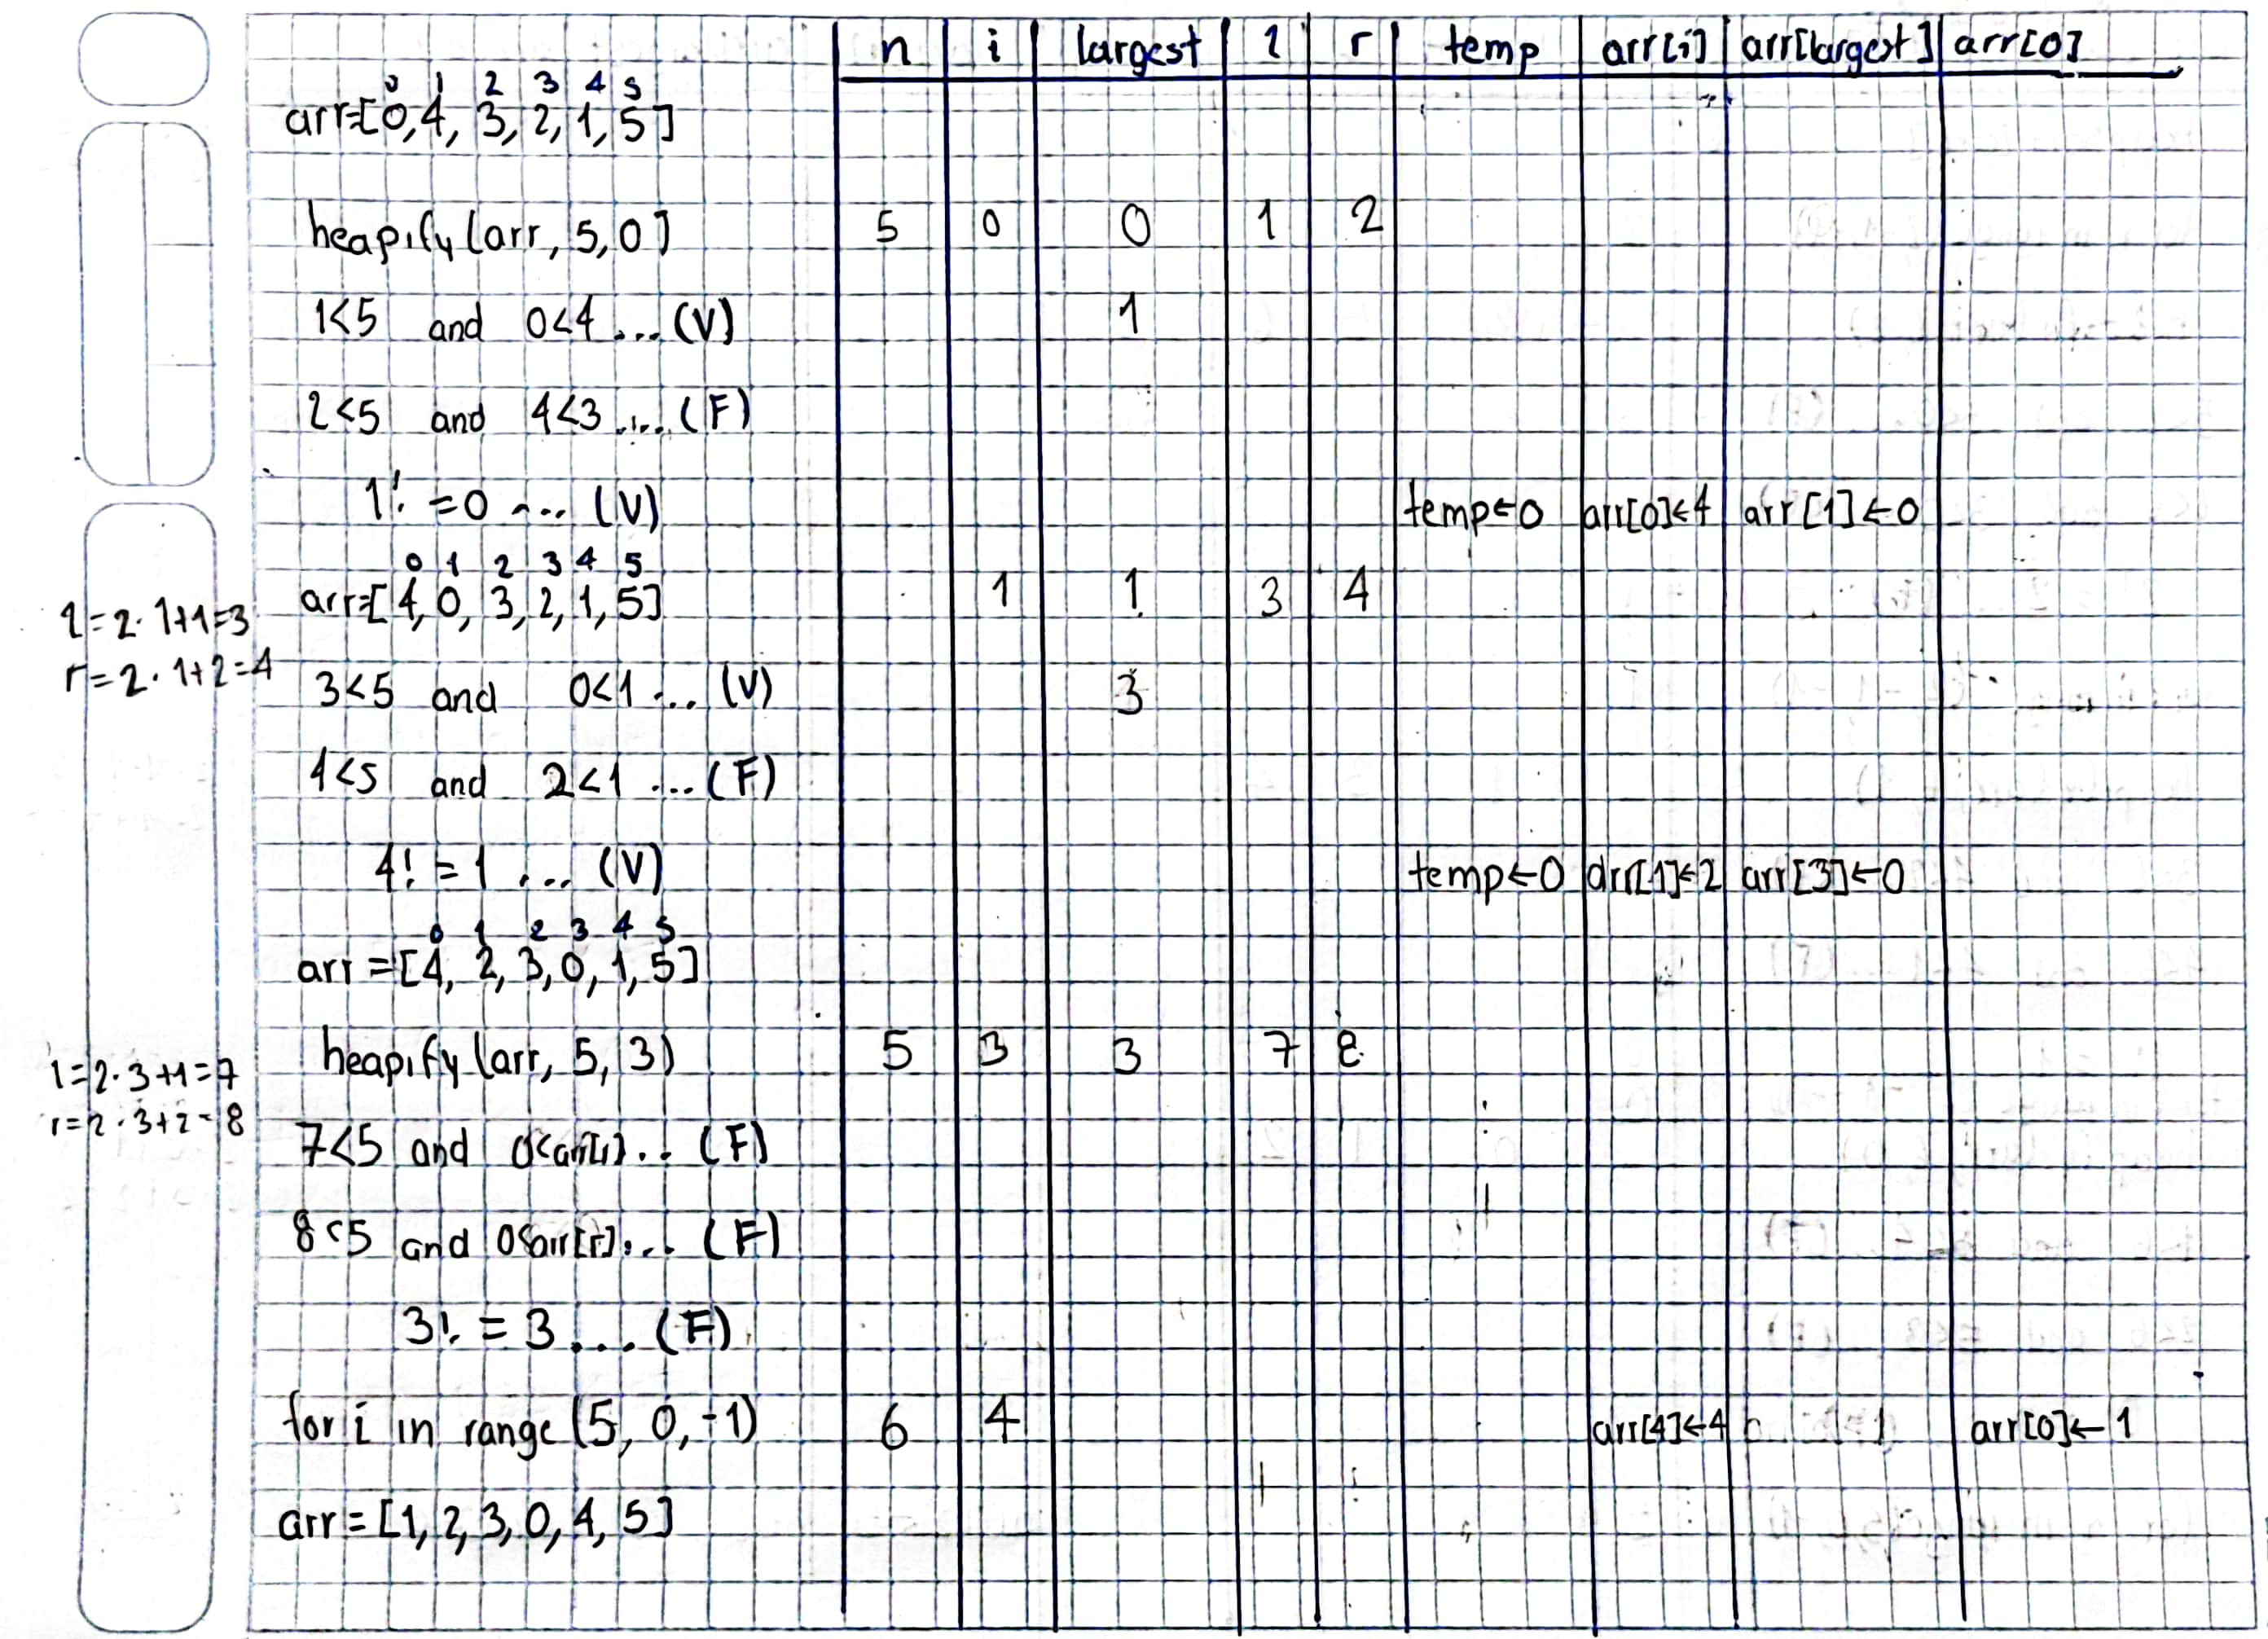 n i largest l r temp arr[i] arr[largest] arr[0]
0 1 2 3 4 5
arr=[0,4,3,2,1,5]
heapify(arr, 5,0] 5 0 0 1 2
1<5 and 0<4 ... (V) 1
2<5 and 4<3 .... (F)
1! =0 ... (V) temp←0 arr[0]←4 arr[1]←0
0 1 2 3 4 5
arr=[4,0,3,2,1,5] 1 1 3 4
l=2·1+1=3
r=2·1+2=4
3<5 and 0<1 ... (V) 3
4<5 and 2<1 ... (F)
4! =1 ... (V) temp←0 arr[1]←2 arr[3]←0
0 1 2 3 4 5
arr=[4, 2,3,0,1,5]
heapify(arr, 5, 3) 5 3 3 7 8
l=2·3+1=7
r=2·3+2=8
7<5 and 0<arr[l]... (F)
8<5 and 0<arr[r]... (F)
3! =3 .... (F)
for i in range (5, 0,-1) 6 4 arr[4]←4 1 arr[0]←1
arr=[1,2,3,0,4,5]